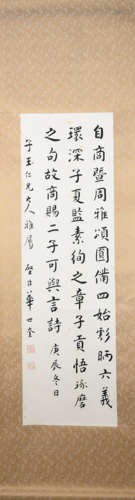 自商暨周雅頌圓備四始彪炳六義
環深子夏監素絢之章子貢悟琢磨
之句故商賜二子可與言詩 庚辰冬日
子玉仁兄大人雅屬 華世奎